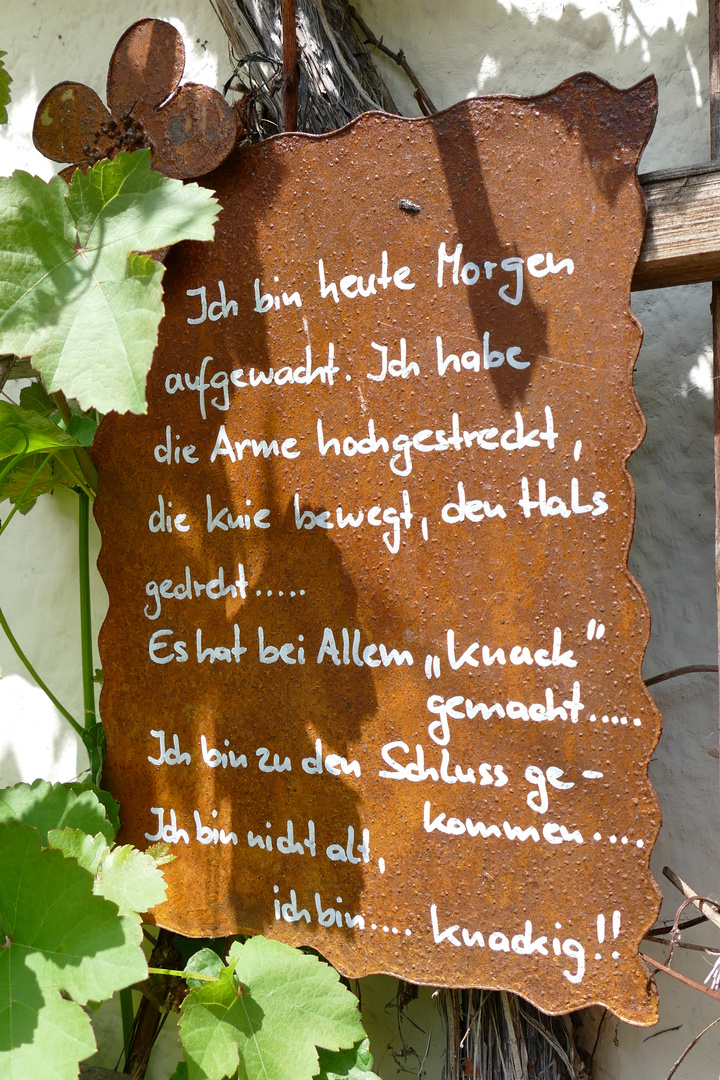 Ich bin heute Morgen
aufgewacht. Ich habe
die Arme hochgestreckt,
die Knie bewegt, den Hals
gedreht.....
Es hat bei Allem „Knack"
gemacht.....
Ich bin zu den Schluss ge-
kommen....
Ich bin nicht alt,
ich bin.... knackig!!